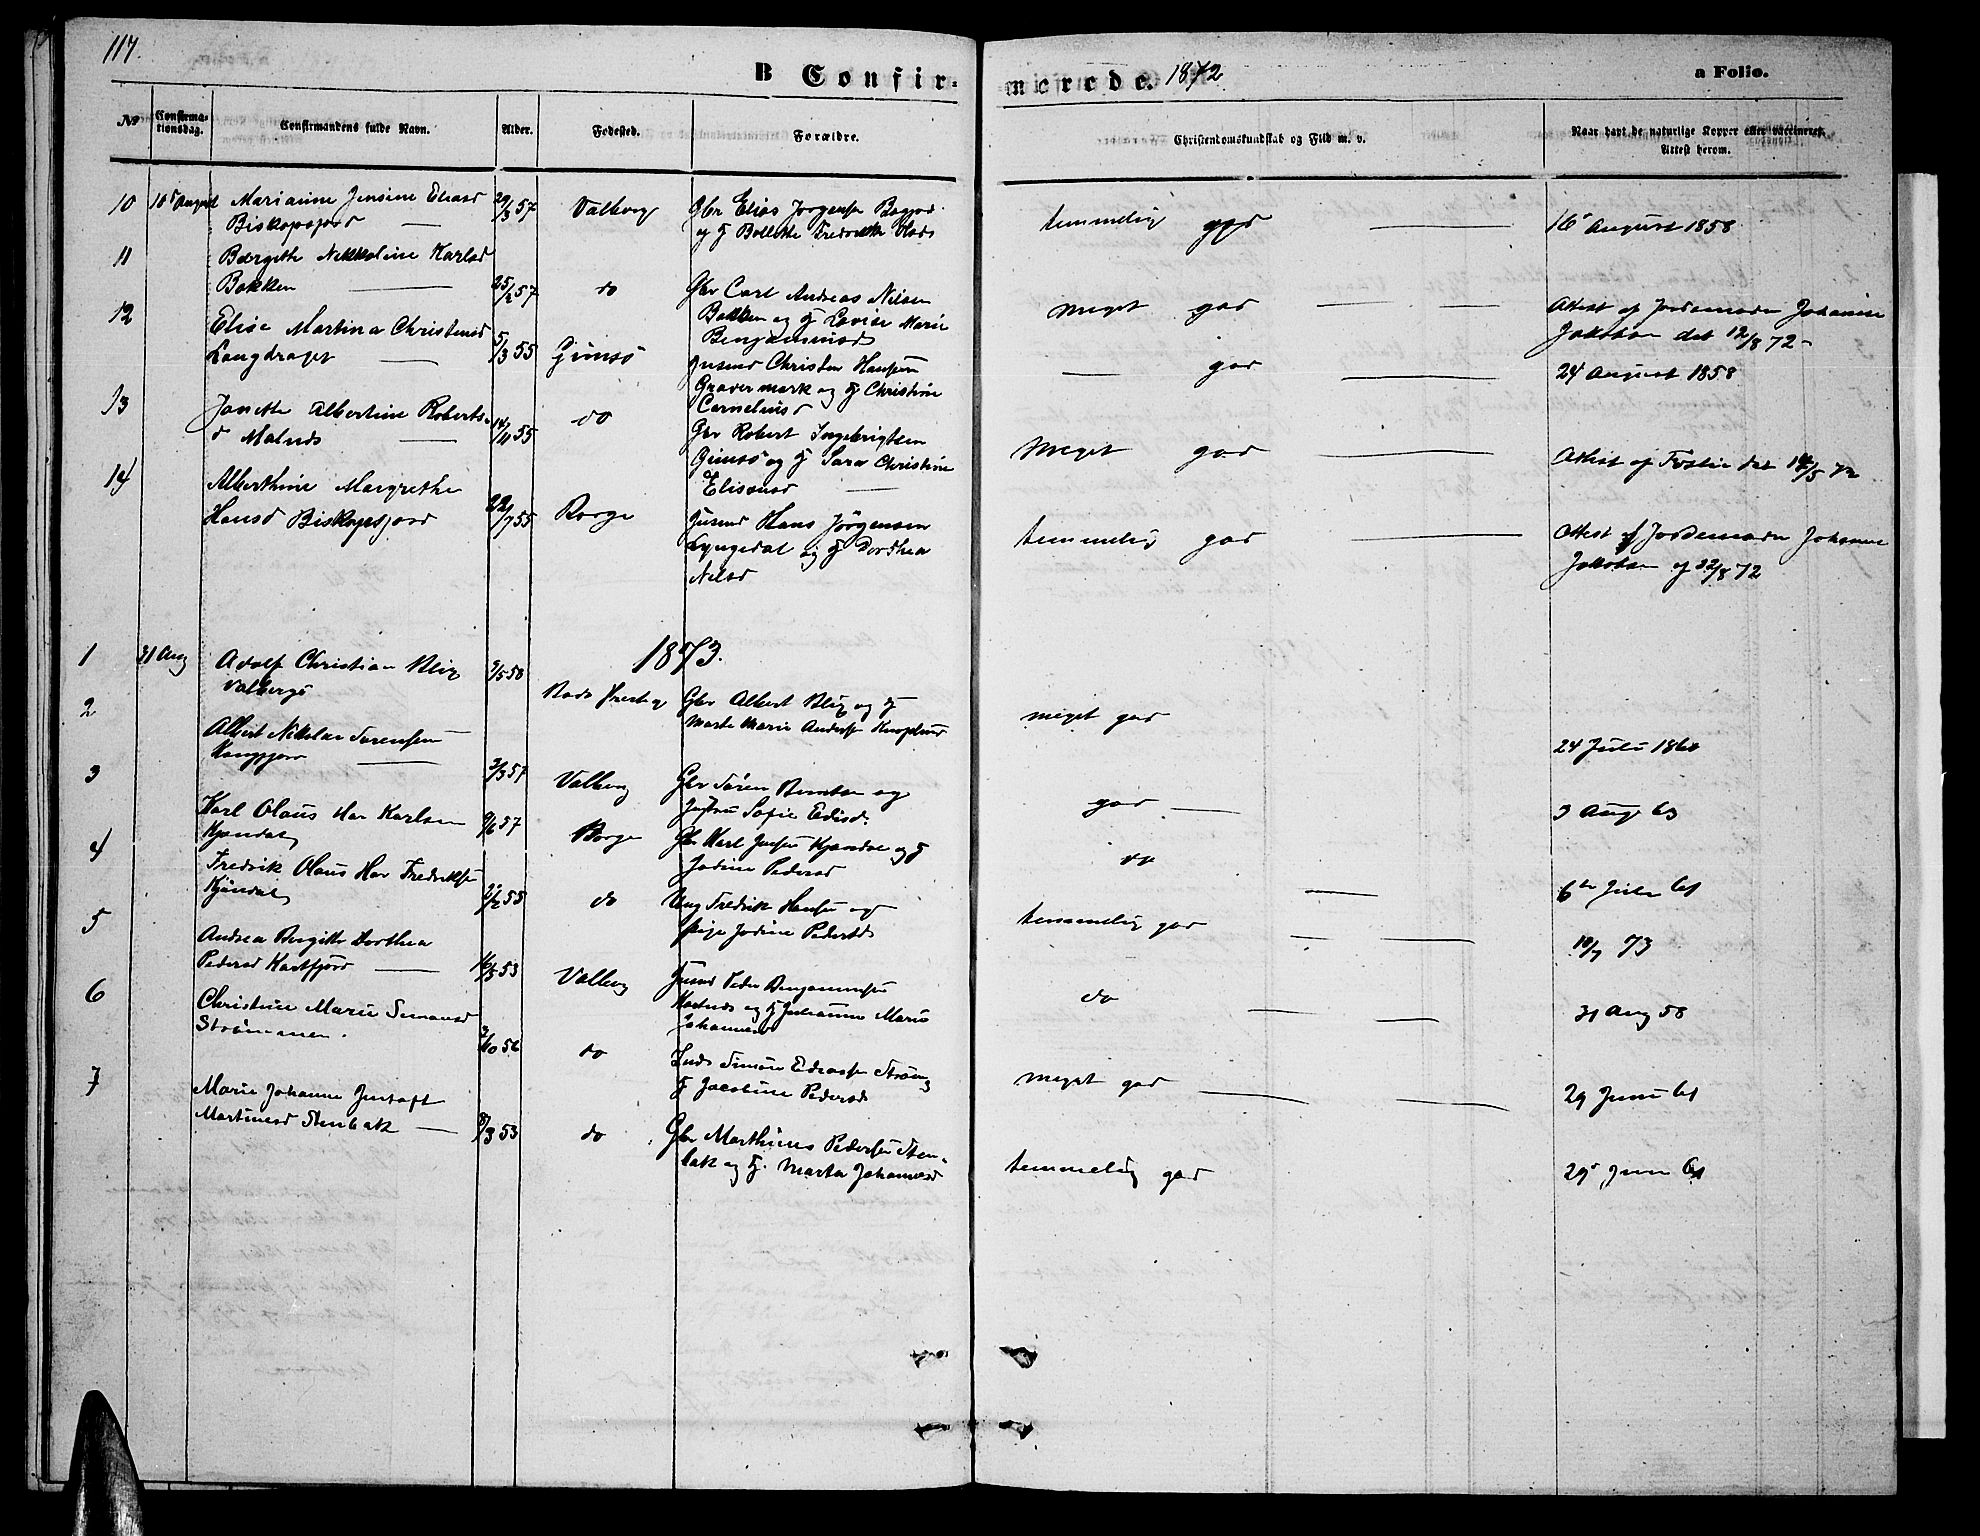 117.
B Confir-
merede. 1872
a Folio.
No
Confirma-
tionsdag.
Confirmandens fulde Navn.
Alder.
Fødested.
Forældre.
Christendomskundskab og Flid m. v.
Naar havt de naturlige Kopper eller vaccineret.
Attest herom.
10 18 August Marianne Jensine Eliasd 29/3 57 Valberg Gbr Elias Jørgensen
Biskopsjord — og H Bollette Fredrikke
temmelig god 16 August 1858
11 Bergitte Nekkoline Karlsd
Bakken — 25/2 57 do Gbr Carl Andreas Nilsen
Bakken og H Lovise Marie
Benjaminsd
meget god — — Attest af Jordemoder Johanne
Jakobsen det 12/8 72
12 Elise Martina Christensd
Langdraget — 5/3 55 Gimsø Husmd Christen Hansen
Gravermark og H Christine
Cornelius d
— god — 24 August 1858
13 Janette Albertine Roberts-
d Malnes — 14/11 55 do Gbr Robert Ingebrigtsen
Gimsø og H Sara Christine
Elisæusd —
Meget god — Attest af det 14/5 72
14 Alberthine Margrethe
Hansd Biskopsjord 22/7 55 Borge Husmd Hans Jørgensen
Lyngedal og H Dorthea
Nilsd
temmelig god — Attest af Jordemoder Johanne
Jakobsen af 22/8 72
1873.
1 31 Aug Adolf Christian Blix 9/5 58
Valberg
Gbr Albert Blix og H
Marte Marie Anders
meget god
24 Juli 1860
2 Albert Nikolai Sørensen
— 3/3 57 Valberg Gbr Søren Berntsen og
Hustru Sofie
god — 3 Aug 63
3 Karl Olaus Har Karlsen 9/6 57 Borge Gbr Karl Jensen Kjøndal og H
Kjøndal Jodine Pedersd
do — — 6te Juli 61
4 Fredrik Olaus Har Fredriksen
Kjøndal 2/2 55 do Ung Fredrik Hansen og
Pige Jodine Pedersd
temmelig god — — 18/7 73
5 Andrea Bergitte Dorthea
Pedersd Hartfjord — 16/5 53 Valberg Husmd Peder Benjaminsen
og H Julianne Marie
Johannesd
do — — 31 Aug 58
6 Christine Marie Simonsd
Strømmen. 3/10 56 do Inds Simon
H Jacobine Pedersd
meget god — — 29 Juni 61
7 Marie Johanne
Martinusd Stenbak — 8/3 53 do Gbr Marthinus Pedersen Sten-
bak og H. Marta Johannesd
temmelig god 29 Juni 61